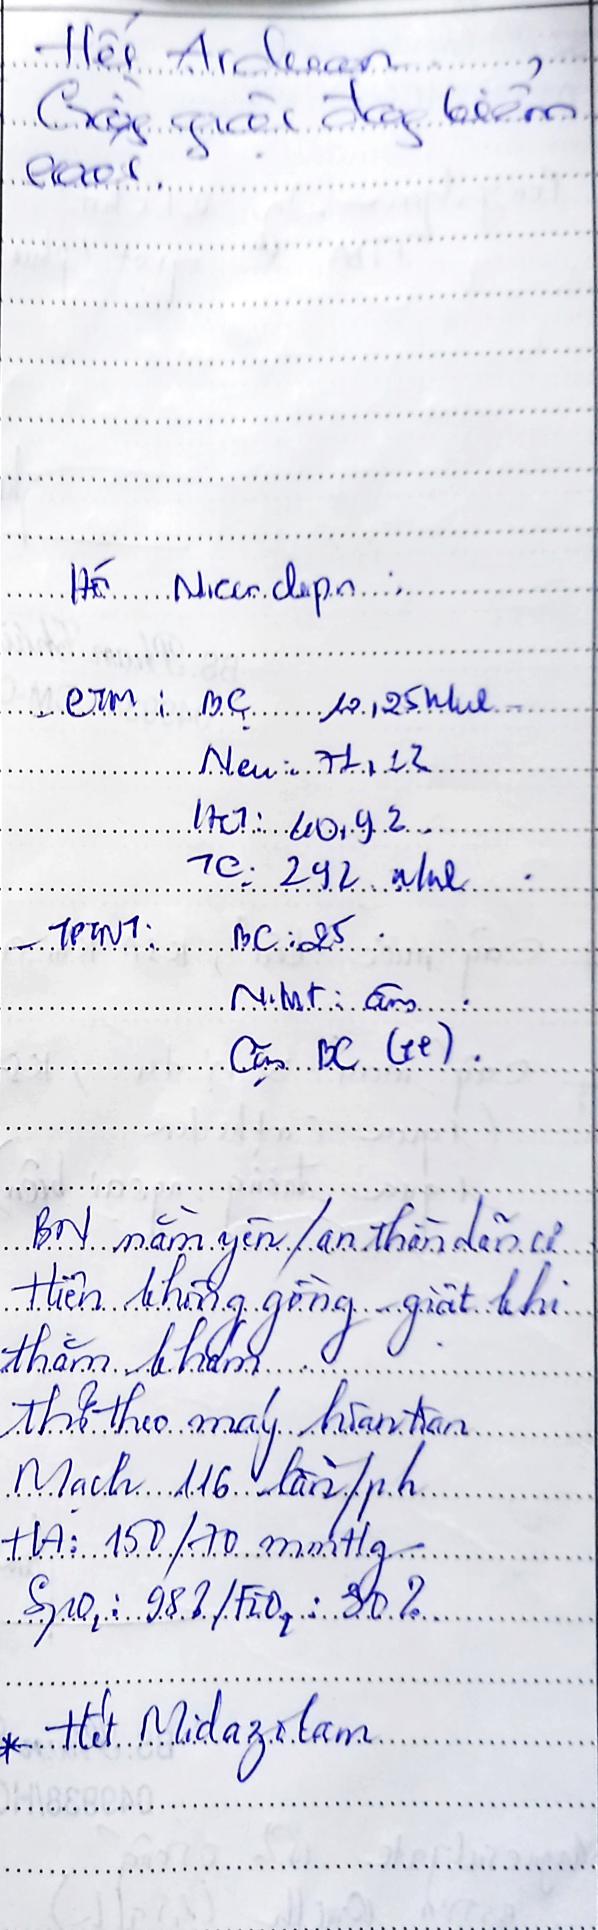 Hết Arduan,
quội đáy biểm
Hết Nicardipin
- CTM: BC 10,25 k/ul
Neu: 71,1%
HCT: 40,9%
TC: 292 k/ul
- TPTNT: BC: 25
Nitrit: âm
Cặn BC (++)
BN nằm yên/an thần dãn cơ
Hiện không gồng giật khi
thăm khám
thở theo máy hoàn toàn
Mạch 116 lần/ph
HA: 150/70 mmHg
SpO₂: 98%/FiO₂: 30%
* Hết Midazolam